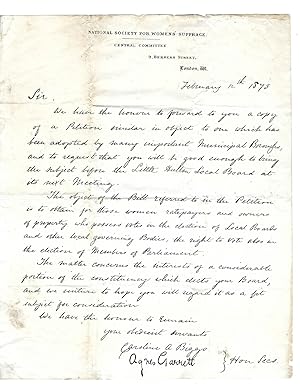 NATIONAL SOCIETY FOR WOMEN'S SUFFRAGE.
CENTRAL COMMITTEE
9, BERNERS STREET,
London, W.
February 12th 1873
Sir,
We have the honour to forward to you a copy
of a Petition similar in object to one which has
been adopted by many important Municipal Boroughs,
and to request that you will be good enough to bring
the subject before the Little Hulton Local Board at
its next Meeting.
The object of the Bill referred to in the Petition
is to obtain for those women ratepayers and owners
of property who possess votes in the election of Local Boards
and other local governing Bodies, the right to vote also in
the election of Members of Parliament.
The matter concerns the interests of a considerable
portion of the constituency which elects your Board,
and we venture to hope you will regard it as a fit
subject for consideration
We have the honour to remain
your obedient servants
Caroline A Biggs
Agnes Garrett } Hon Secs.